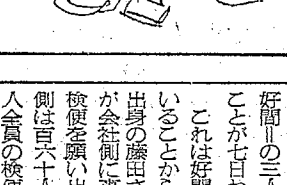 好間＝の三人
ことが七日っ
これは好間
いることから
出身の藤田さ
が会社側に
検便を願い出
側は百六十人
人全員の検便